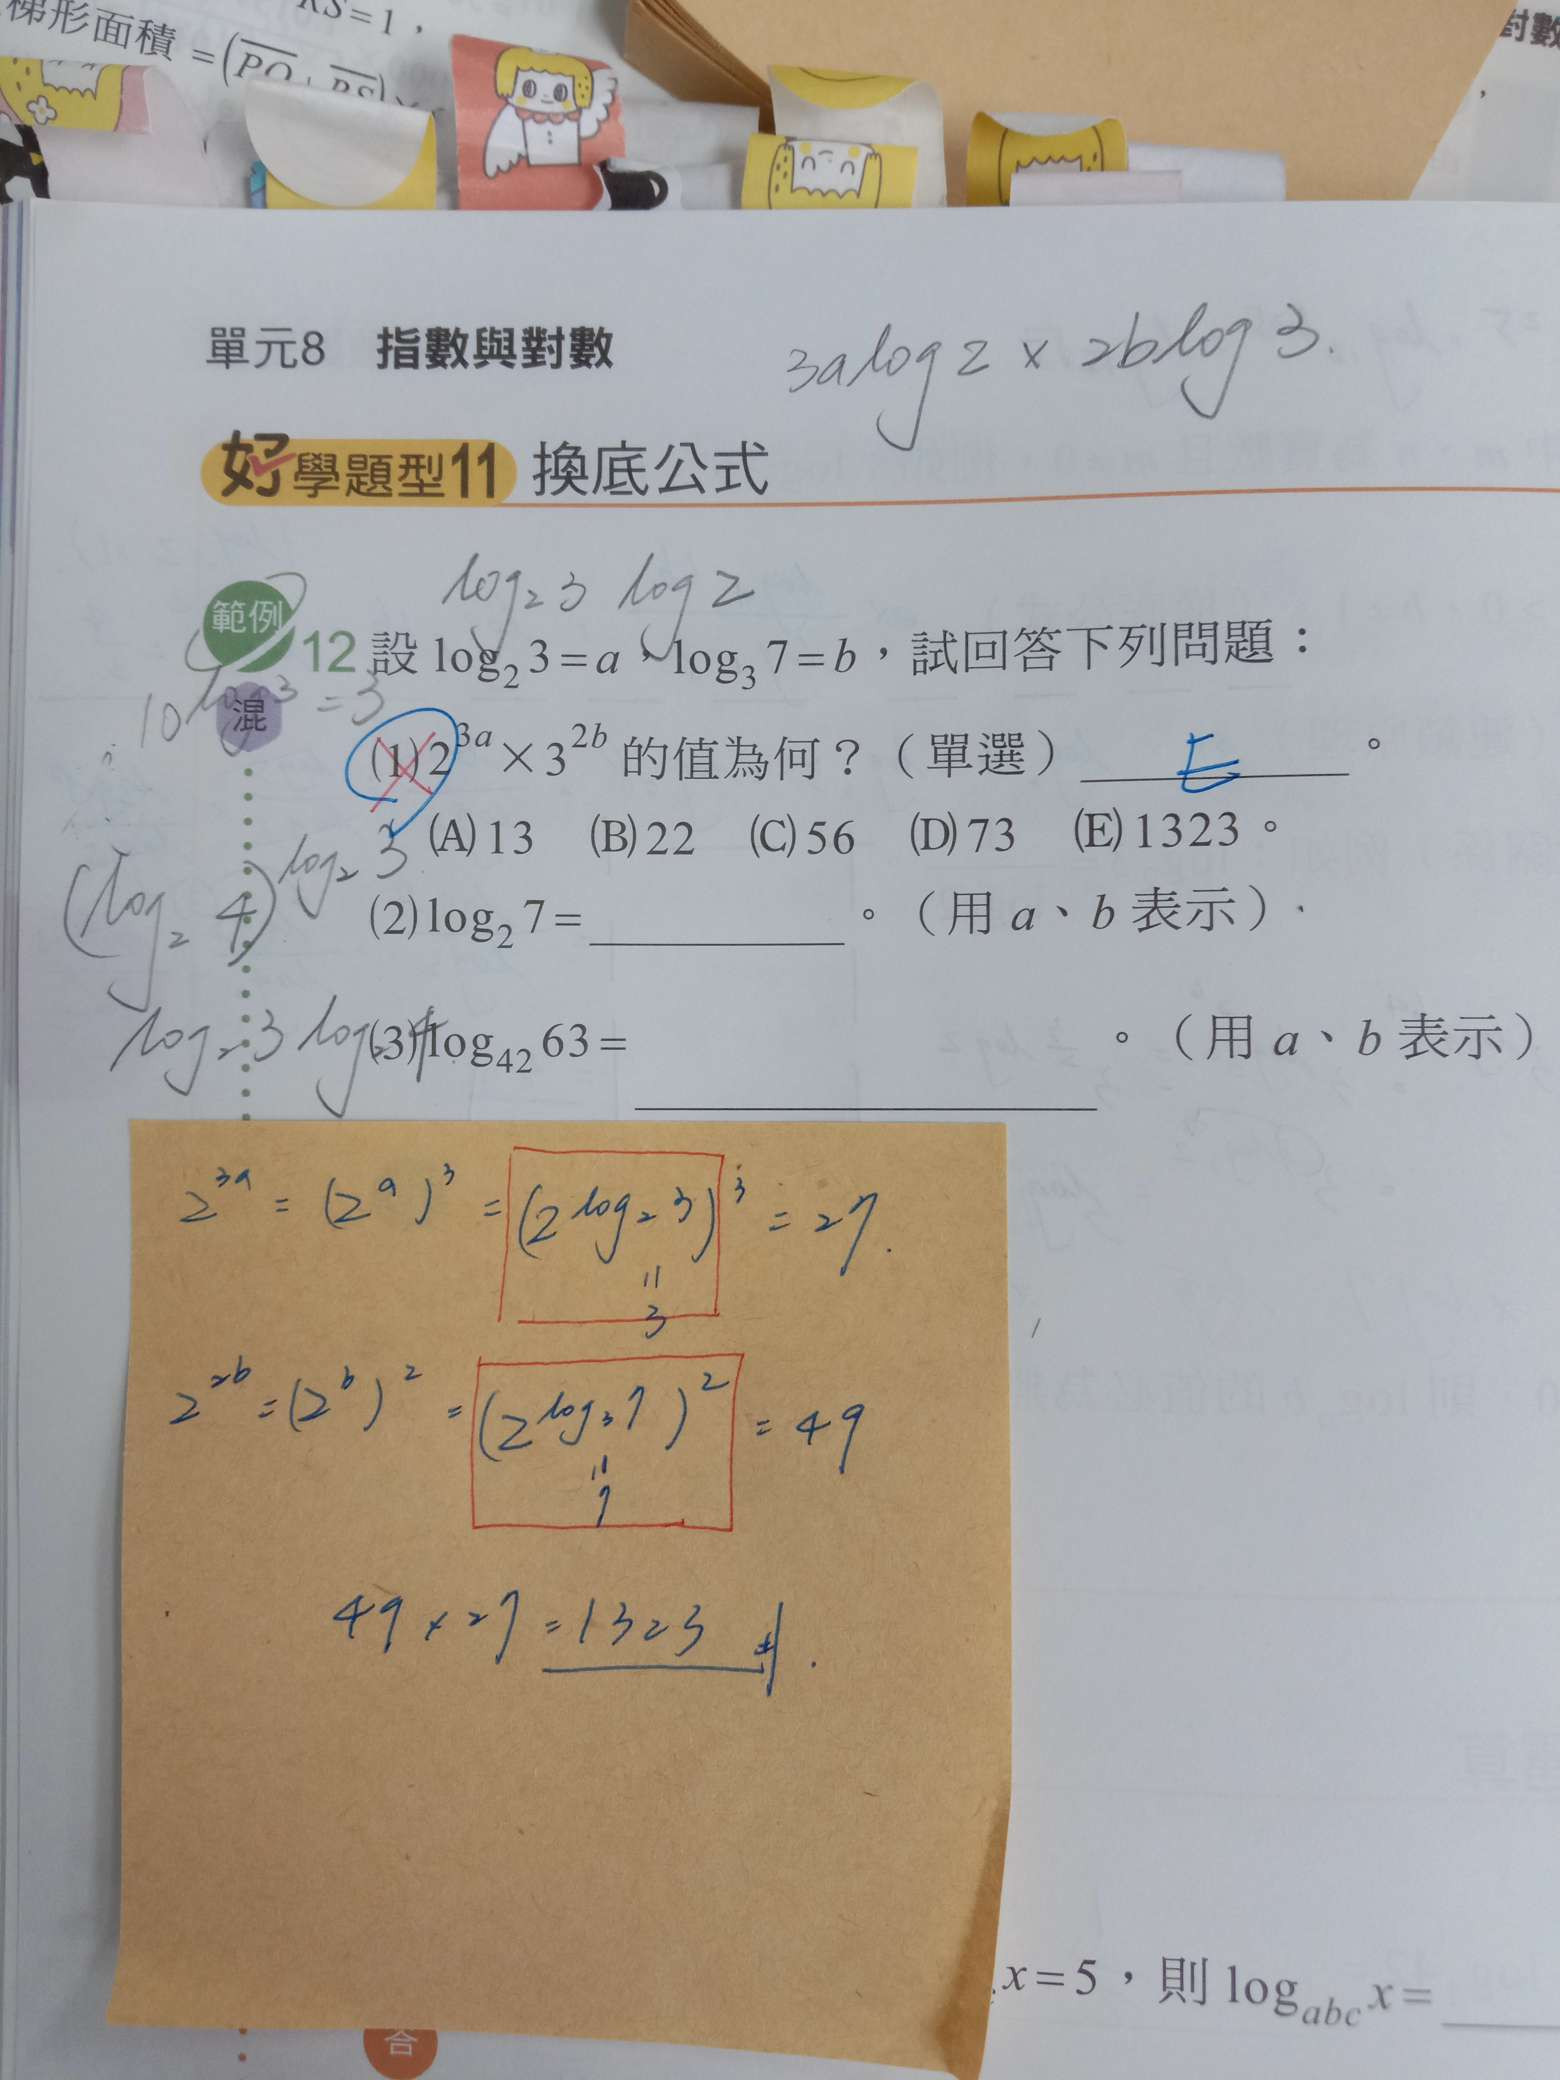 梯形面積 = (PQ + RS) ×
RS = 1，
對數
單元8 指數與對數
3a log 2 × 2b log 3.
好學題型11 換底公式
log₂ 3 log 2
範例 12 設 log₂ 3 = a、log₃ 7 = b，試回答下列問題：
10^{log 3} = 3
混
(1) 2^{3a} × 3^{2b} 的值為何？（單選） E 。
(A) 13 (B) 22 (C) 56 (D) 73 (E) 1323。
(log₂ 4)^{log₂ 3}
(2) log₂ 7 = ______。（用 a、b 表示）.
log₂ 3 log₂ 4
(3) log₄₂ 63 = ______。（用 a、b 表示）
2^{3a} = (2^a)^3 = (2^{log₂ 3})^3 = 27.
=
3
2^{2b} = (2^b)^2 = (2^{log₃ 7})^2 = 49
=
7
49 × 27 = 1323 #.
x = 5，則 log_{abc} x = ______
合